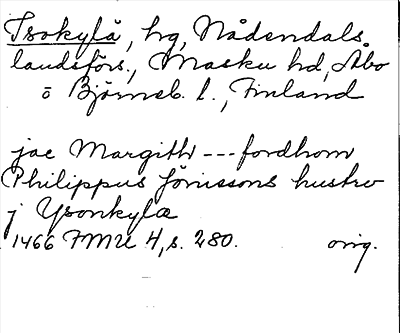 Isokylä, hg, Nådendals
landsförs., Masku hd, Åbo
o Björneb. l., Finland
jac Margith --- fordhom
Philippus Jönissons hustro
j Ysonkylæ
1466 FMU 4, s. 280. orig.